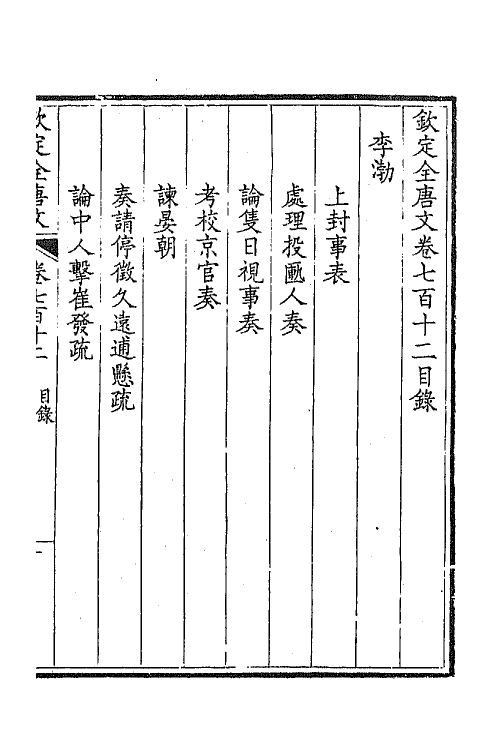 欽定全唐文卷七百十二目錄
李渤
上封事表
處理投匭人奏
論隻日視事奏
考校京官奏
諫晏朝
奏請停徵久遠逋懸疏
論中人擊崔發疏
欽定全唐文 卷七百十二 目錄 一